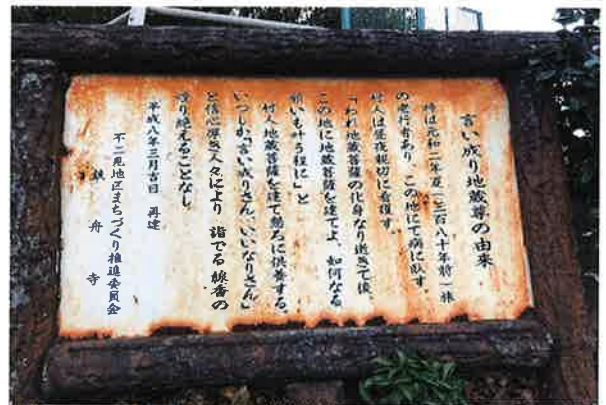 言い成り地蔵尊の由来
時は元和二年夏(三百八十年前)一旅
の老行者あり、この地にて病に臥す。
村人は昼夜親切に看護す。
「われ地蔵菩薩の化身なり逝きて後、
この地に地蔵菩薩を建てよ、如何なる
願いも叶う程に」と
村人地蔵菩薩を建て懇ろに供養する。
いつしか「言い成りさん、いいなりさん」
と信心厚き人々により 詣でる 線香の
香り絶えることなし
平成八年三月吉日 再建
不二見地区まちづくり推進委員会
鉄舟寺